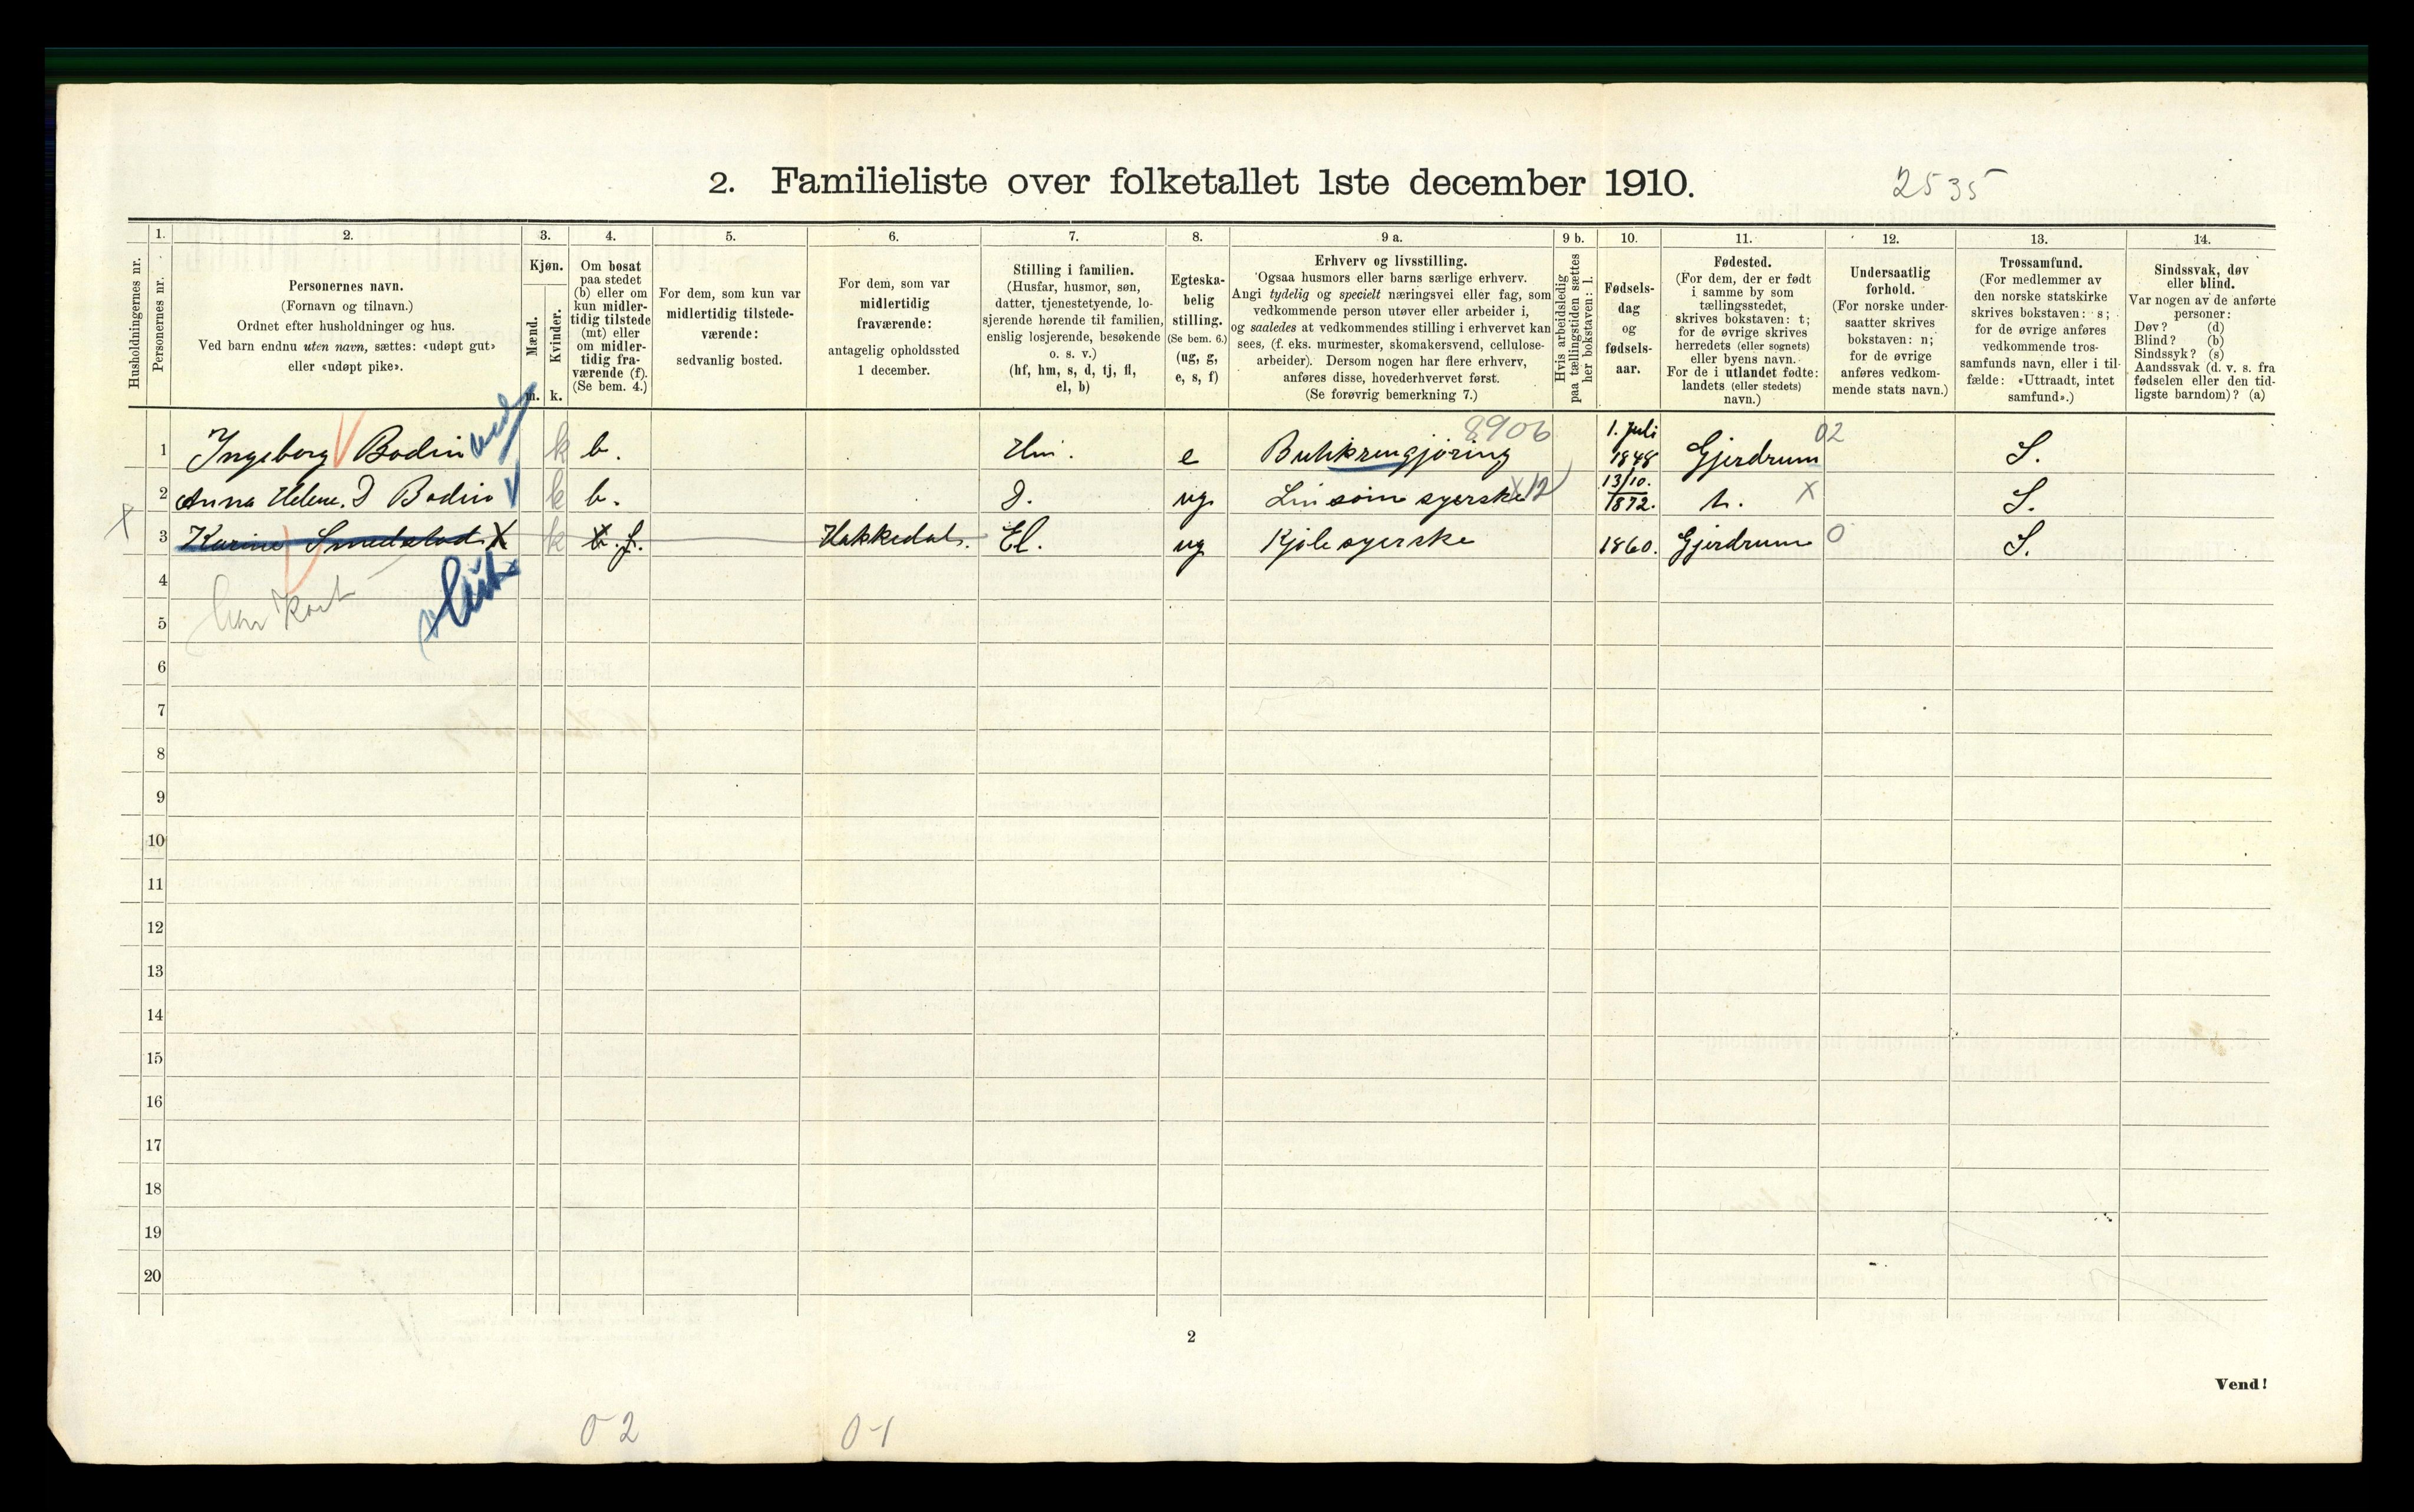 2. Familieliste over folketallet 1ste december 1910.
2535
Husholdningernes nr.
1.
Personernes nr.
2.
Personernes navn.
(Fornavn og tilnavn.)
Ordnet efter husholdninger og hus.
Ved barn endnu uten navn, sættes: «udøpt gut»
eller «udøpt pike».
3.
Kjøn.
Mænd.
Kvinder.
m. k.
4.
Om bosat
paa stedet
(b) eller om
kun midler-
tidig tilstede
(mt) eller
om midler-
tidig fra-
værende (f).
(Se bem. 4.)
5.
For dem, som kun var
midlertidig tilstede-
værende:
sedvanlig bosted.
6.
For dem, som var
midlertidig
fraværende:
antagelig opholdssted
1 december.
7.
Stilling i familien.
(Husfar, husmor, søn,
datter, tjenestetyende, lo-
sjerende hørende til familien,
enslig losjerende, besøkende
o. s. v.)
(hf, hm, s, d, tj, fl,
el, b)
8.
Egteska-
belig
stilling.
(Se bem. 6.)
(ug, g,
e, s, f)
9 a.
Erhverv og livsstilling.
Ogsaa husmors eller barns særlige erhverv.
Angi tydelig og specielt næringsvei eller fag, som
vedkommende person utøver eller arbeider i,
og saaledes at vedkommendes stilling i erhvervet kan
sees, (f. eks. murmester, skomakersvend, cellulose-
arbeider). Dersom nogen har flere erhverv,
anføres disse, hovederhvervet først.
(Se forøvrig bemerkning 7.)
9 b.
Hvis arbeidsledig
paa tællingstiden sættes
her bokstaven: l.
10.
Fødsels-
dag
og
fødsels-
aar.
11.
Fødested.
(For dem, der er født
i samme by som
tællingsstedet,
skrives bokstaven: t;
for de øvrige skrives
herredets (eller sognets)
eller byens navn.
For de i utlandet fødte:
landets (eller stedets)
navn.)
12.
Undersaatlig
forhold.
(For norske under-
saatter skrives
bokstaven: n;
for de øvrige
anføres vedkom-
mende stats navn.)
13.
Trossamfund.
(For medlemmer av
den norske statskirke
skrives bokstaven: s;
for de øvrige anføres
vedkommende tros-
samfunds navn, eller i til-
fælde: «Uttraadt, intet
samfund».)
14.
Sindssvak, døv
eller blind.
Var nogen av de anførte
personer:
Døv? (d)
Blind? (b)
Sindssyk? (s)
Aandssvak (d. v. s. fra
fødselen eller den tid-
ligste barndom)? (a)
1 Ingeborg Bodin k b. Hm. e Butikrengjøring 8906 1. juli 1848 Gjerdrum 02 S.
2 Anna Helene. D Bodin k b. D. ug. Lin søm syerske X12 13/10. 1872. t. X S.
X 3 Karine Smedstad X k b. f. Hakkedal. El. ug Kjole syerske 1860. Gjerdrum 0 S.
4
5
6
7
8
9
10
11
12
13
14
15
16
17
18
19
20
2
Vend!
0-2 0-1